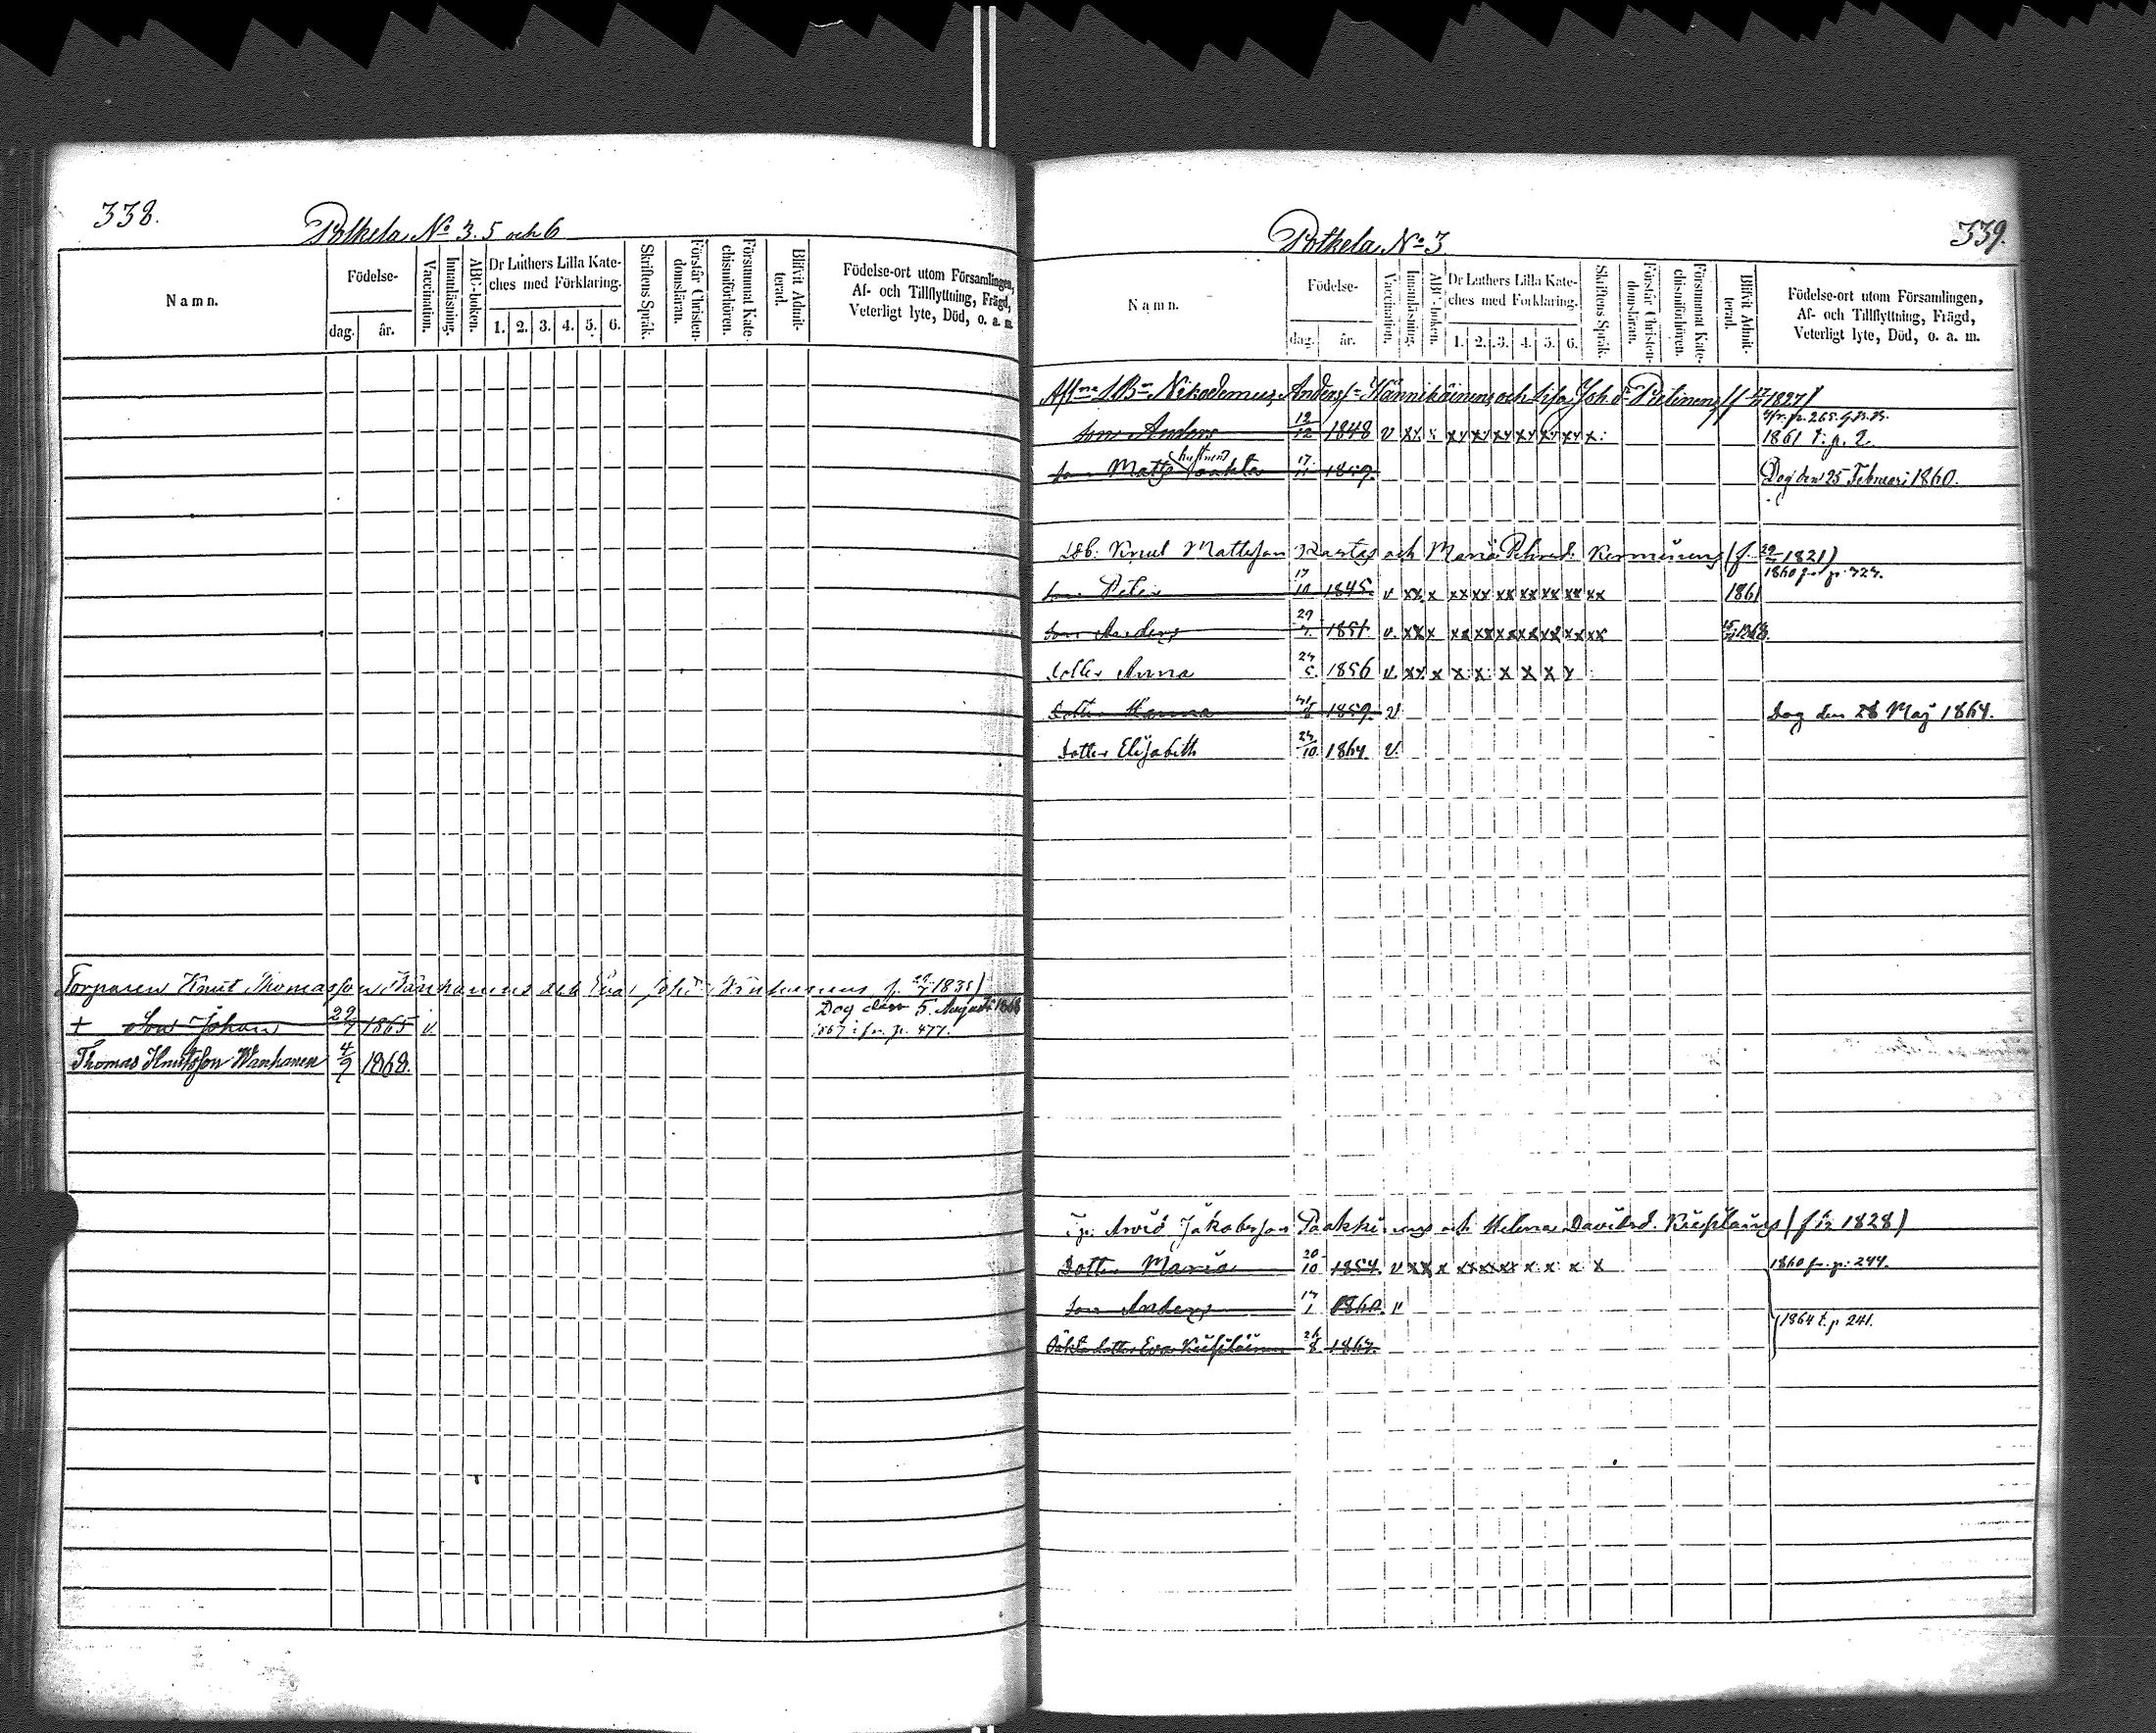 338.
Potkela No 3. 5 och 6
Namn.
Födelse-
dag.
år.
Vaccination.
Innanläsning.
ABC-boken.
Dr Luthers Lilla Kate-
ches med Förklaring.
1. 2. 3. 4. 5. 6.
Skriftens Språk.
Förstår Christen-
domsläran.
Försummat Kate-
chismiförhören.
Blifvit Admit-
terad.
Födelse-ort utom Församlingen,
Af- och Tillflyttning, Frägd,
Veterligt lyte, Död, o. a. m.
Torparen Knut Thomasson och Eva 1835)
Dog den 5. August 1868
+ Son Johan 29/7 1865 v.
1867 i fr. p. 477.
Thomas Knutsson Wanhanen 4/9 1868.
339.
Potkela No 3
Namn.
Födelse-
dag.
år.
Vaccination.
Innanläsning.
ABC-boken.
Dr Luthers Lilla Kate-
ches med Förklaring.
1. 2. 3. 4. 5. 6.
Skriftens Språk.
Förstår Christen-
domsläran.
Försummat Kate-
chismiförhören.
Blifvit Admit-
terad.
Födelse-ort utom Församlingen,
Af- och Tillflyttning, Frägd,
Veterligt lyte, Död, o. a. m.
Nikodemus Anderss: Hännikäinens och Lisa Joh.dr Pietinens 1827)
Son Anders 12/12 1848 v xx x xx xx xx xx xx xx x:
1861 t. p. 2.
Son Matts 17/11 1859.
Dog den 25 Februari 1860.
Knut Mattsson Rastas och Maria Pehrsd: Kerminens (f. 1821)
Son Peter 17/10 1845. v xx x xx xx xx xx xx xx xx 1861
Son Anders 29 1851. v. xx x xx xx xx xx xx xx xx
Dotter Anna 24/5 1856 v. xx x x: x: x x x x
Dotter Hanna 1859. v
Dog den 28 Maj 1864.
Dotter Elisabeth 24/10 1864. v
Arvid Jakobsson Paakkinens och Helena Davidsd. (f. 1828)
Dotter Maria 20/10 1854. v xx x xx xx xx x x x x
1860 fr. p. 244.
Son Anders 1860. v
1864 t. p 241.
dotter Eva 26/8 1864.